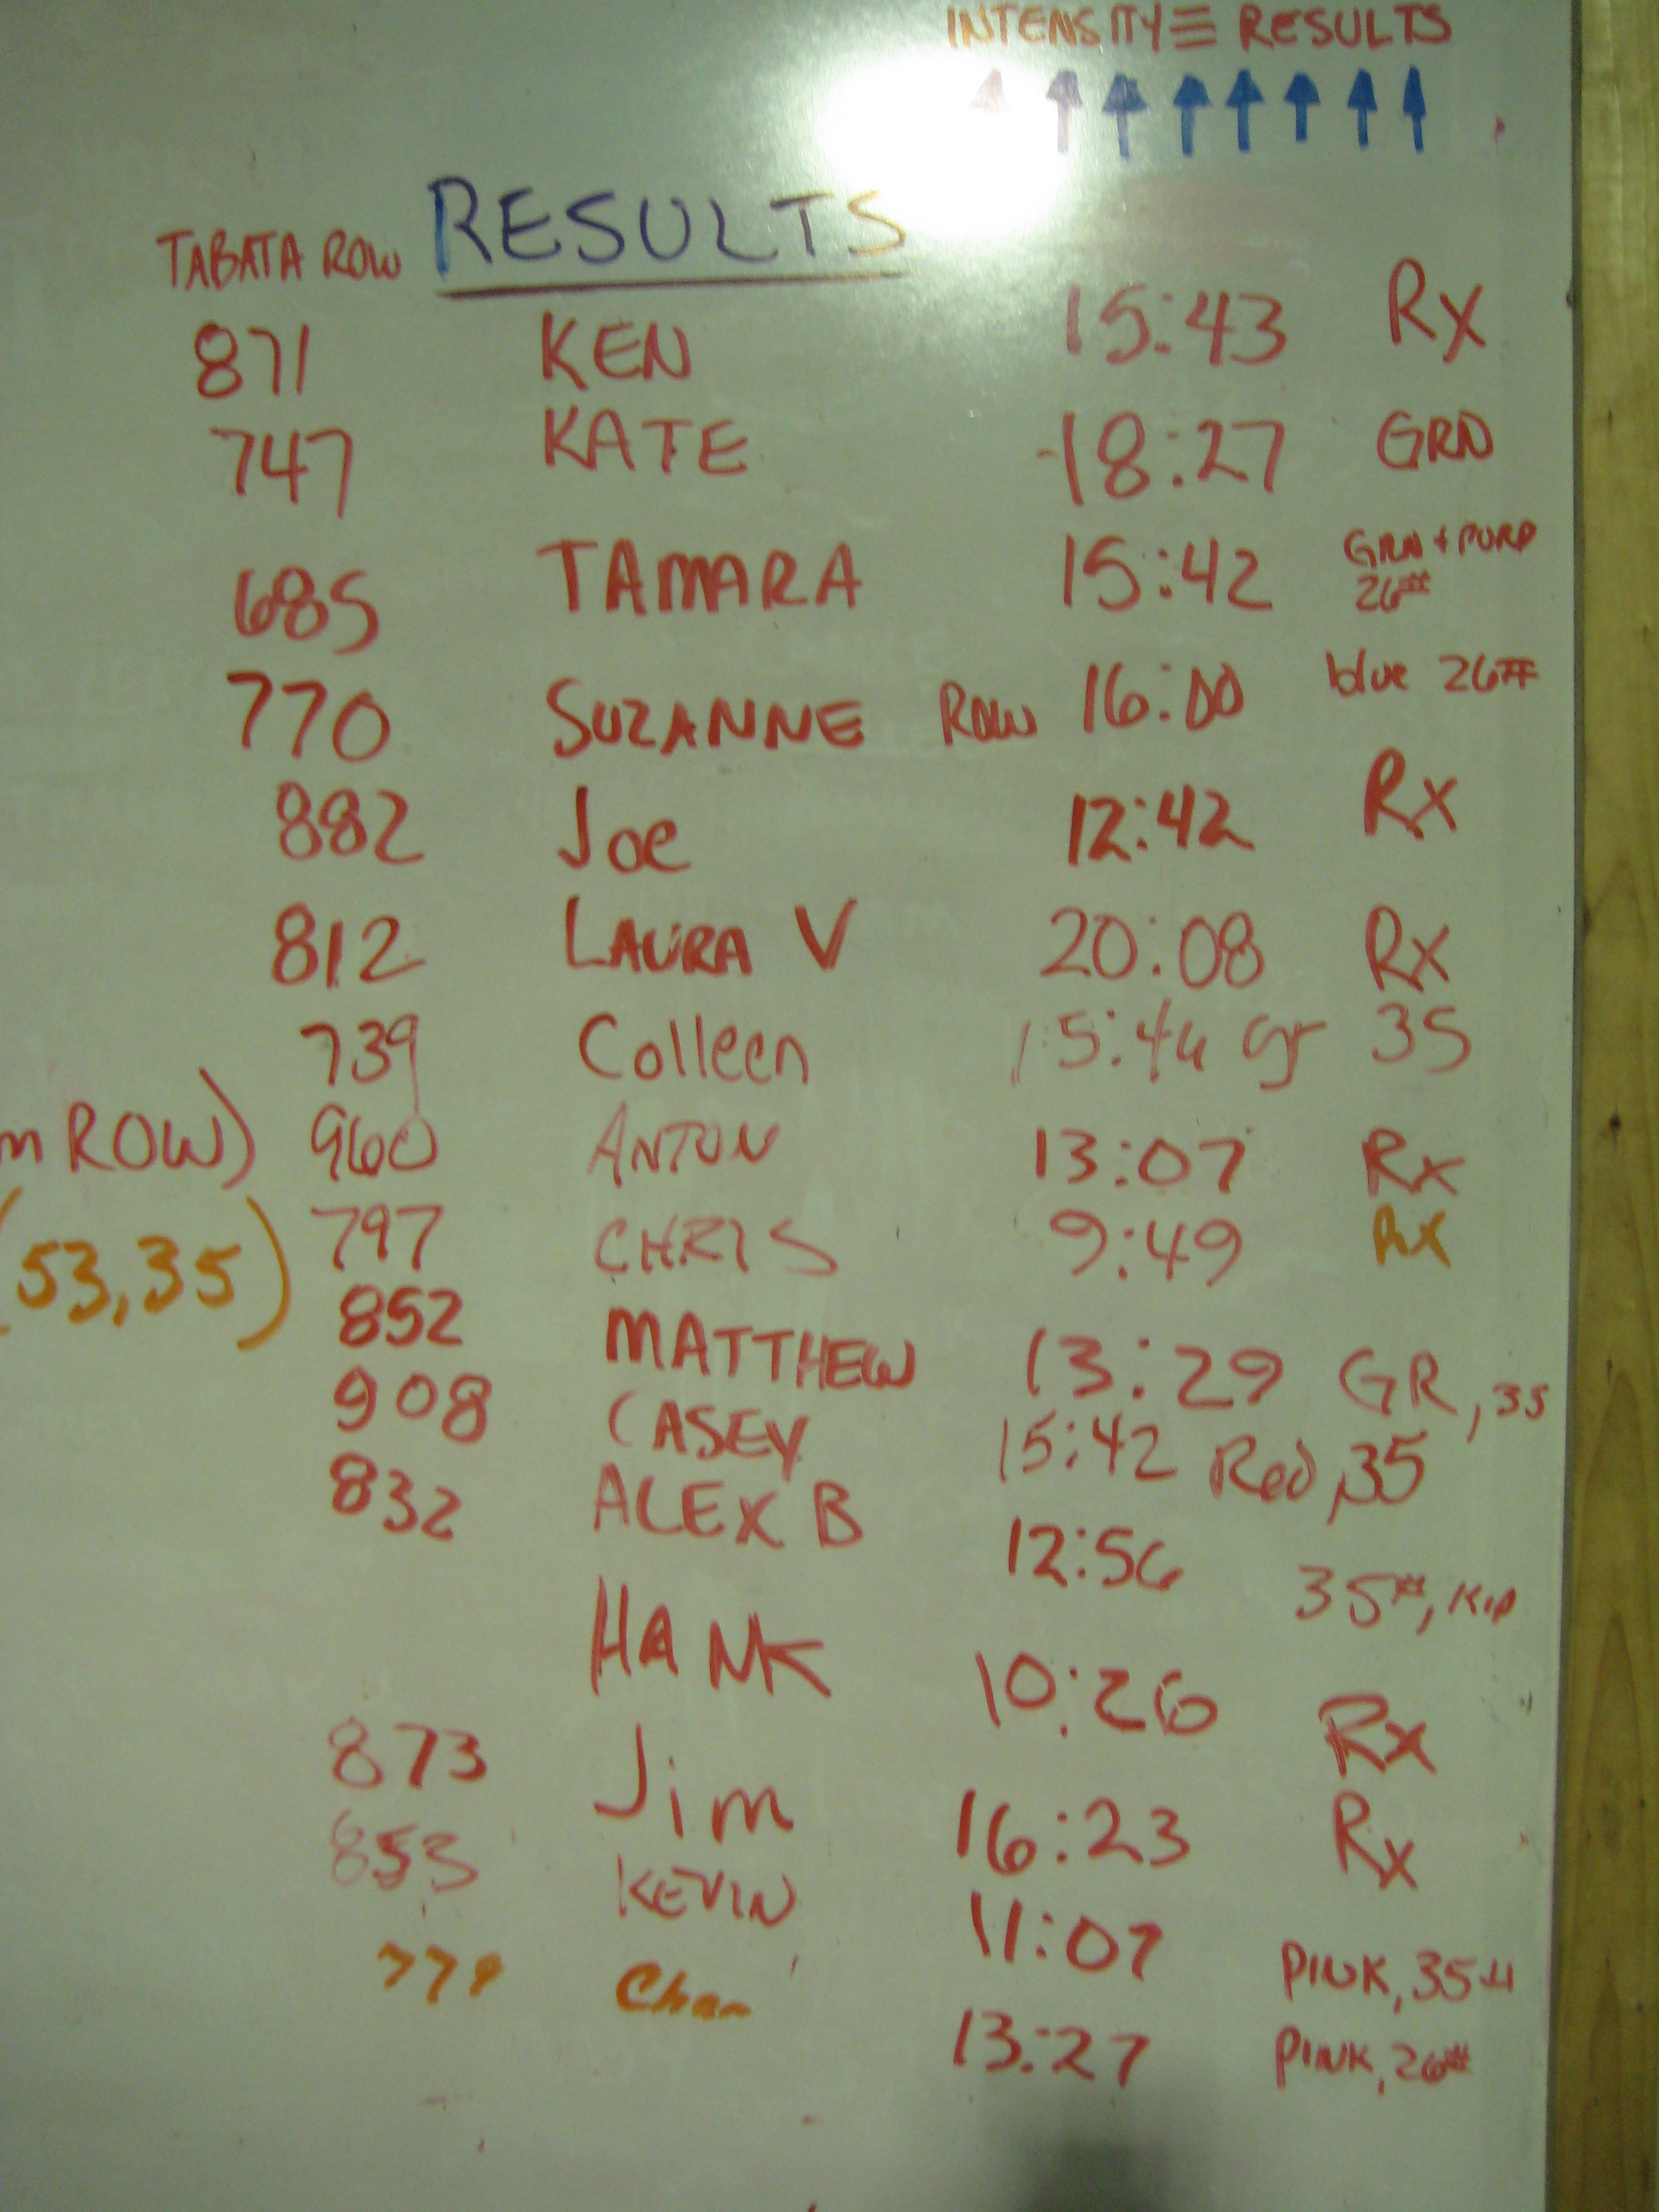 INTENSITY ≡ RESULTS
TABATA ROW RESULTS
871 KEN 15:43 Rx
747 KATE 18:27 GRN
685 TAMARA 15:42 GRN + PURP 26#
770 SUZANNE ROW 16:00 blue 26#
882 Joe 12:42 Rx
812 LAURA V 20:08 Rx
739 Colleen 15:44 gr 35
m ROW) 960 ANTON 13:07 Rx
(53,35) 797 CHRIS 9:49 Rx
852 MATTHEW 13:29 GR, 35
908 CASEY 15:42 Red, 35
832 ALEX B 12:56 35#, KIP
HANK 10:26 Rx
873 Jim 16:23 Rx
853 KEVIN 11:07 PINK, 35#
13:27 PINK, 26#